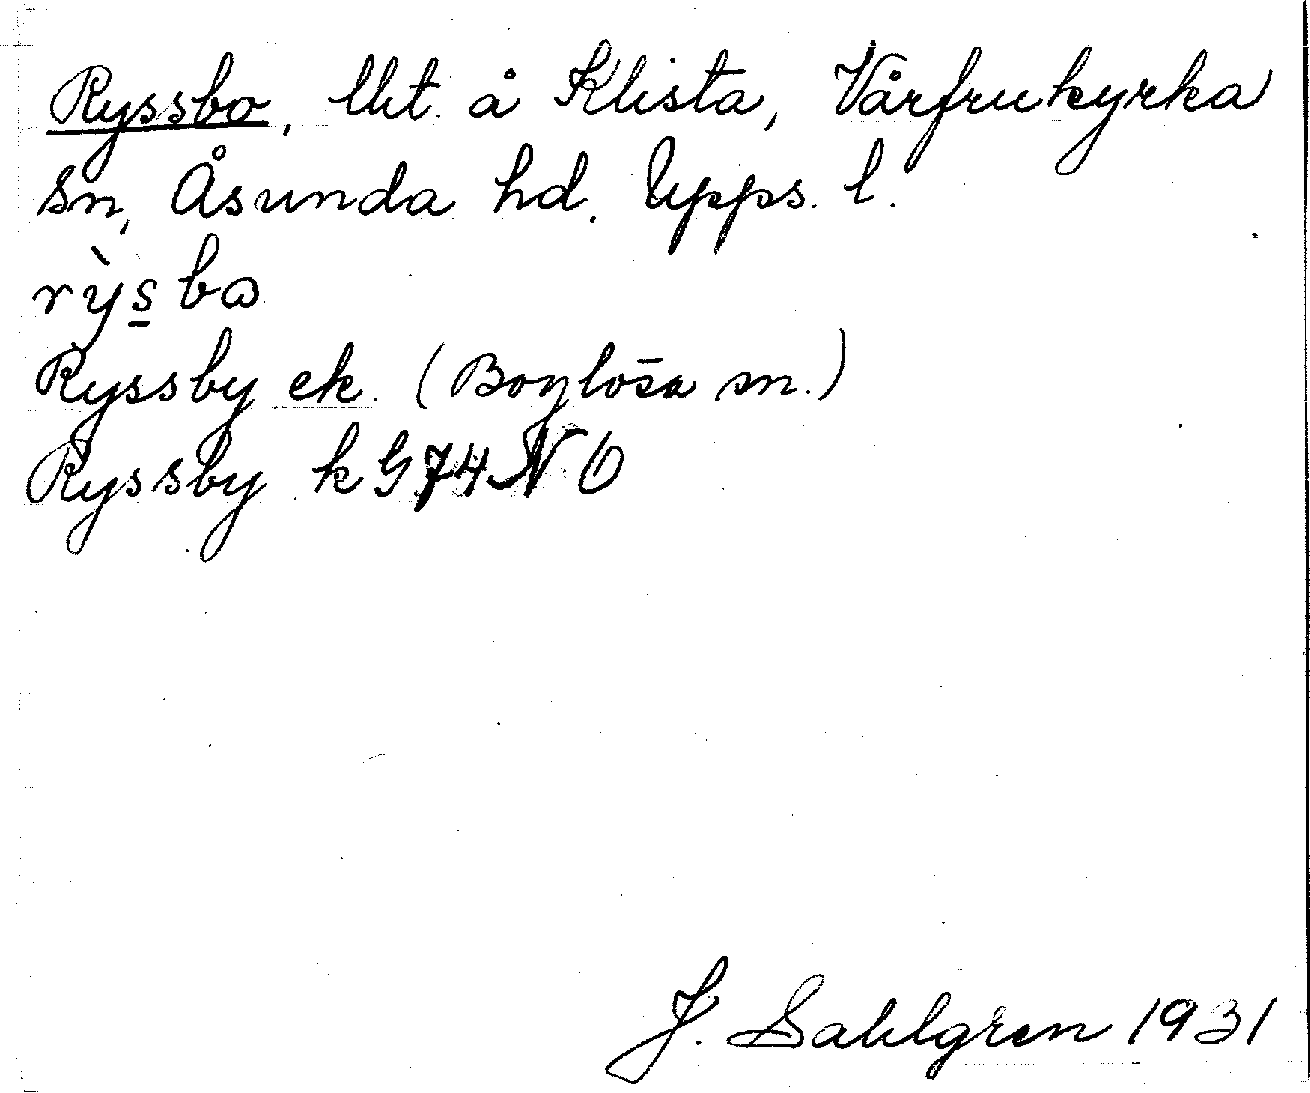 Ryssbo, lht. å Klista, Vårfrukyrka
sn, Åsunda hd. Upps. l.
rỳs̲bɷ
Ryssby ek. (Boglösa sn.)
Ryssby k G 74 NO
J. Sahlgren 1931